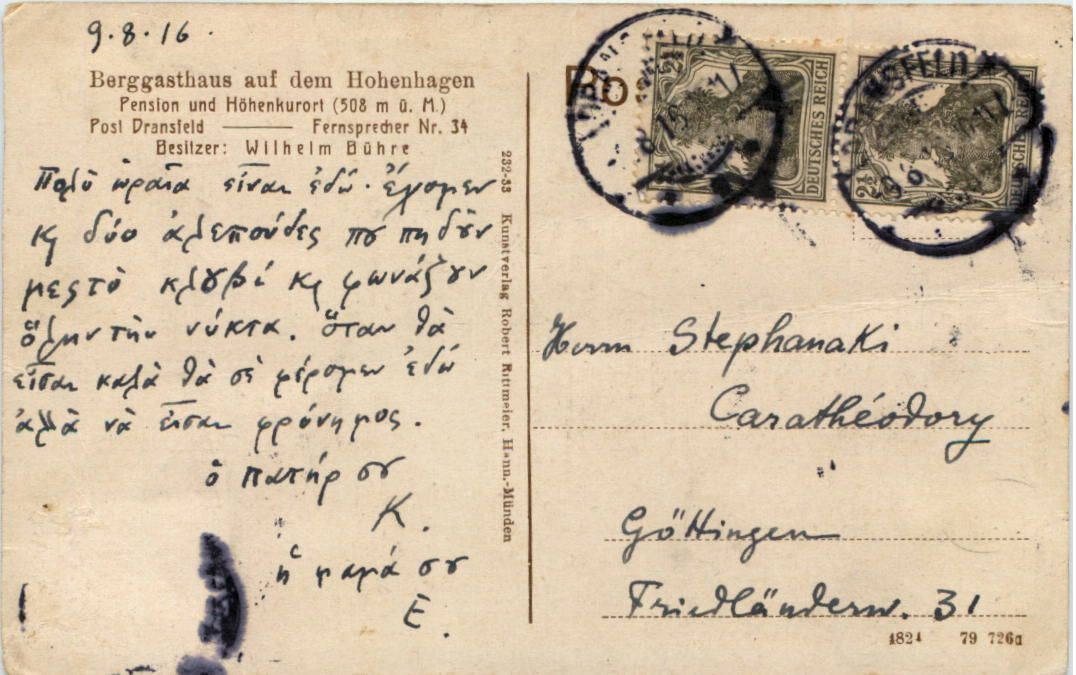 9.8.16.
Berggasthaus auf dem Hohenhagen
Pension und Höhenkurort (508 m ü. M.)
Post Dransfeld —— Fernsprecher Nr. 34
Besitzer: Wilhelm Bühre
Πολὺ ὡραῖα εἶναι ἐδῶ. ἔχομεν
κ̣ δύο ἀλεποῦδες πȣ πηδȣ͂ν
μεςτὸ κλȣβὶ κ̣ φωνάζȣν
ὅλην τὴν νύκτα. ὅταν θὰ
εἶσαι καλὰ θὰ σὲ φέρομεν ἐδῶ
ἀλλὰ νὰ εἶσαι φρόνημος.
ὁ πατήρ σȣ
Κ.
ἡ μαμά σȣ
Ε.
232-33 Kunstverlag Robert Rittmeier, Hann.-Münden
DEUTSCHES REICH
2½
DRANSFELD
DEUTSCHES REICH
2½
Herrn Stephanaki
Carathéodory
Göttingen
Friedländerw. 31
1824 79 726a